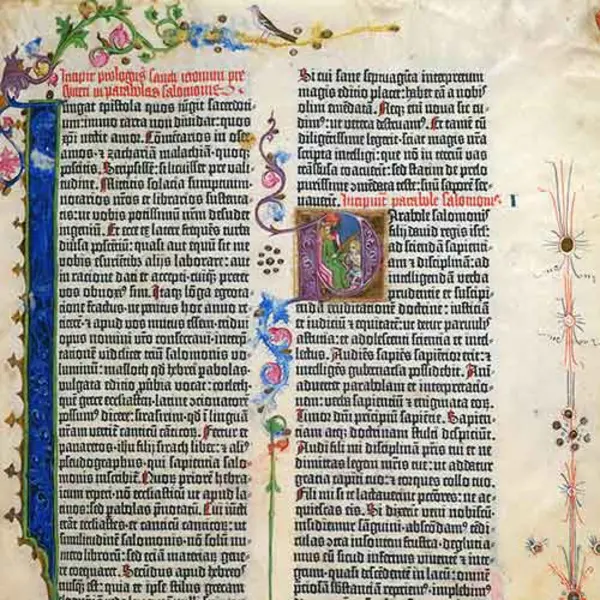 Incipit prologus sancti ieronimi pre
sbiteri in parabolas salomonis
Iungat epistola quos iūgit sacerdoti-
um: immo carta non diuidat: quos
xpi nectit amor. Cōmētarios in osee
amos et zachariā malachiā quoqȝ
poscitis. Scripsissē: si licuisset pre vali-
tudine. Mittitis solacia sumptuum.
notarios nr̄os et librarios sustenta-
tis: ut vobis potissimū nr̄m desudet
ingeniū. Et ecce ex latere frequēs turba
diuersa poscētiū: quasi aut equū sit me
vobis esurientibꝰ alijs laborare: aut
in ratione dati et accepti cuiqȝ preter
vos obnoxiꝰ sim. Itaqȝ lōga egrota-
tione fractus ne penitus hoc anno re-
ticerē et apud vos mutus essem: tridui
opus nomini vr̄o consecraui: interp̄-
tationē videlicet triū salomonis vo-
luminū: malloth qd hebrei pabolas
vulgata editio ꝓūbia vocat: coeleth
quē grece ecclesiasten latine ꝯcionatorē
possumꝰ dicere: sirasirim qd ī linguā
nram vertit canticū cāticoꝝ. Fertur et
panaretos ihu filij sirach liber: et aliꝰ
pseudographus qui sapientia salo-
monis inscribit̄. Quoꝝ priorē hebra-
icum reperi nō ecclesiasticū ut apud la-
tinos: sed pabolas p̄notatū. Cui iūcti
erāt ecclesiastes et canticū canticoꝝ: ut
similitudinē salomonis nō solū nu-
mero libroꝝ: sed etiā materiaꝝ gene-
re coequaret. Secūdus apud hebreos
nusqȝ est: quia et ipse stilus grecam
Si cui sane septuaginta interpretum
magis editio placet: habet eā a nobis
olim emēdatā. Neqȝ em̄ noua sic cu-
dimꝰ: ut vetera destruamꝰ. Et tamē cū
diligētissime legerit: sciat magis nr̄a
scripta intelligi: que nō in tercīū vas
trāsfusa coacuerīt: sed statim de prelo
purissime ꝯmēdata teste: suū saporē ser-
uauerīt. Incipiunt parabole salomonis
Parabole salomonis
filij dauid regis isrl̄:
ad sciendā sapienti-
am et disciplinā: ad
intelligendā verba
prudentie et suscipi-
endā eruditationē doctrine: iusticiā
et iudiciū et equitatē: ut detur paruulis
astutia: et adolescenti scientia et intel-
lectus. Audiēs sapiēs sapiētior erit: et
intelligēs gubernacula possidebit. Ani-
aduertet parabolam et interpretatio-
nem: verba sapientiū et enigmata eoꝝ.
Timor dn̄i principiū sapiētie. Sapien-
tiam atqȝ doctrinam stulti despiciūt.
Audi fili mi disciplinā pr̄is tui et ne
dimittas legem mr̄is tue: ut addatur
gracia capiti tuo: et torques collo tuo.
Fili mi si te lactauerint pctōres: ne ac-
quiescas eis. Si dixerint veni nobiscū
insidiemur sanguini abscōdamꝰ tēdi-
culas cōtra insontem frustra: deglutia-
mus eū sicud infernus viuente et inte-
grum: quasi descēdentē in lacū: omnē
p̄ciosā substanciā reperiemꝰ: implebimꝰ